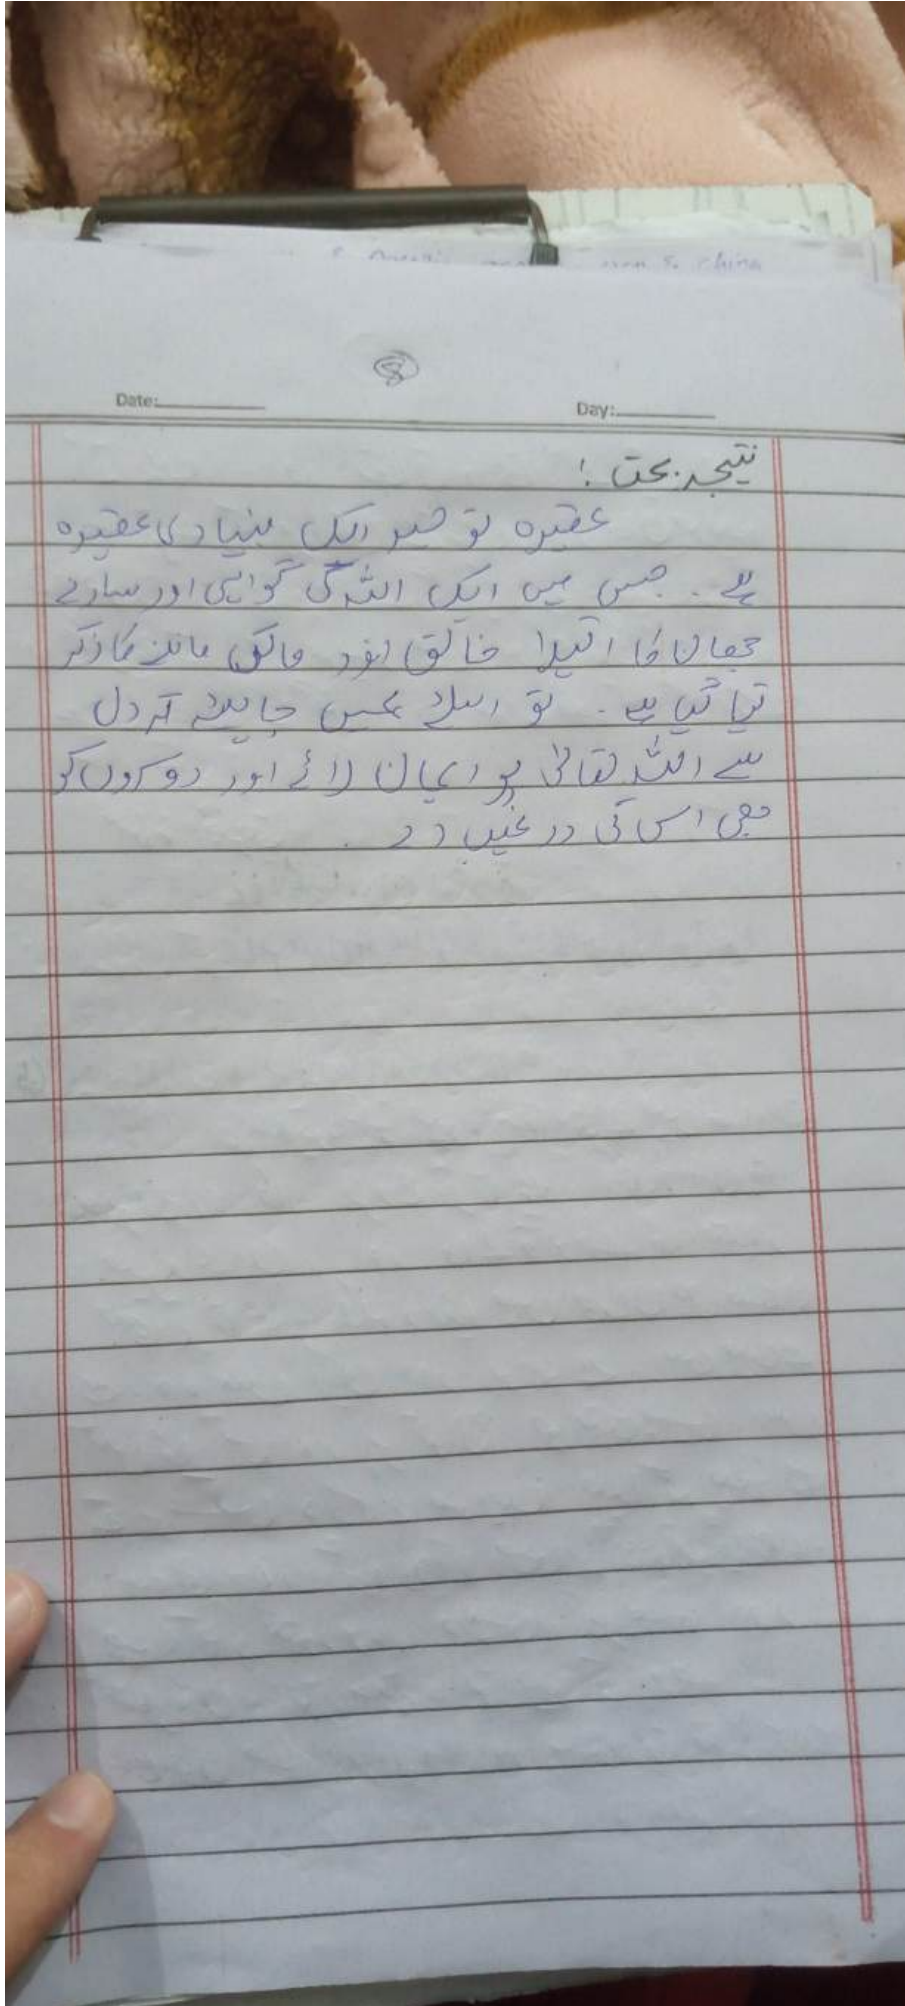 & China
8
Date: Day:
نتیجہ بحث :
عقیدہ توحید ایک بنیادی عقیدہ
ہے۔ جس میں ایک اللہ کی گواہی اور سارے
جہان کا اکیلا خالق اور مالک ماننے کا ذکر
کیا گیا ہے۔ تو اسلئے ہمیں چاہئے کہ دل
سے اللہ تعالیٰ پر ایمان لائے اور دوسروں کو
بھی اس کی دے۔